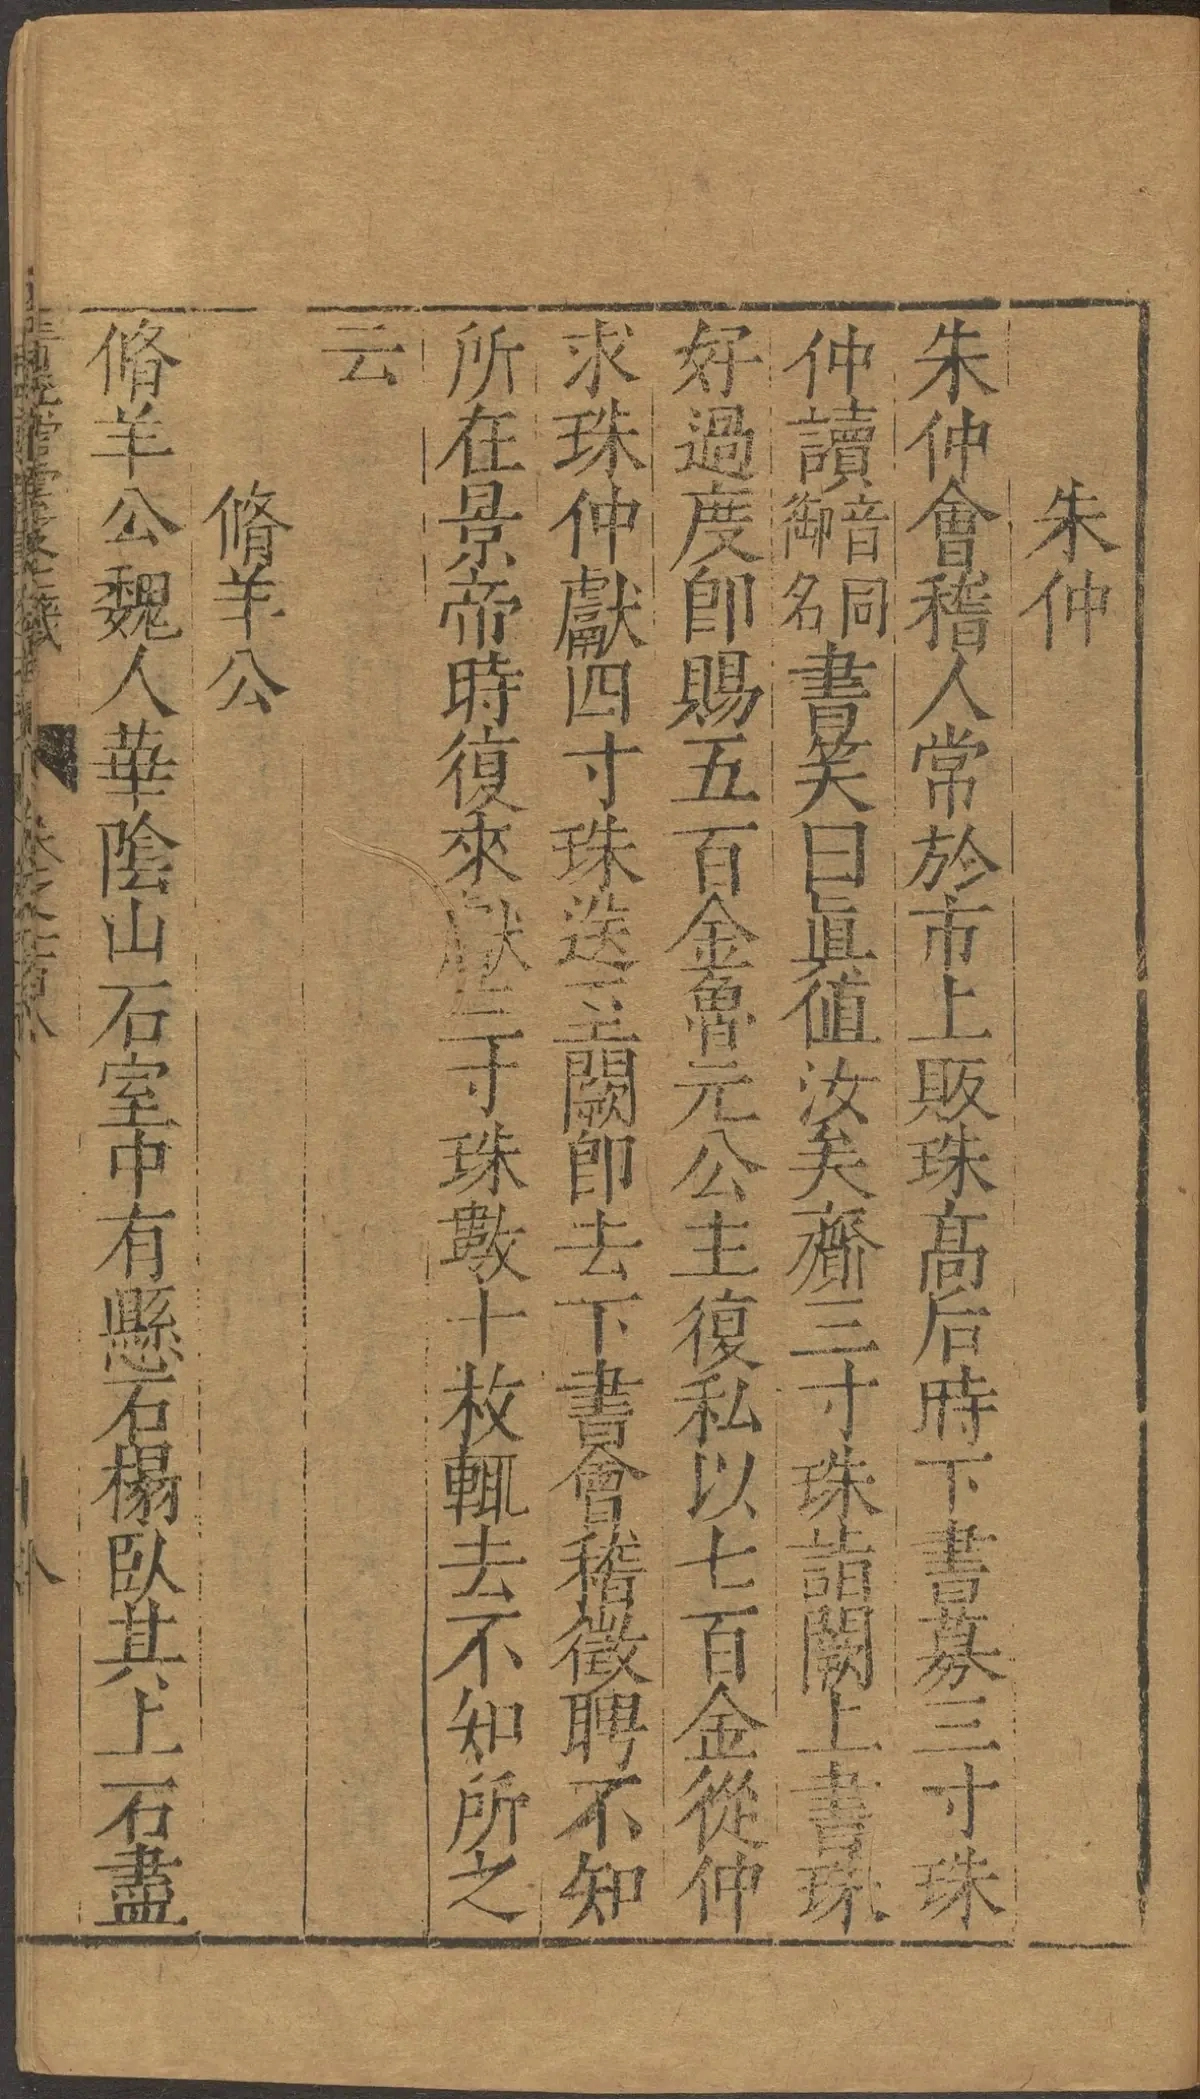 朱仲
朱仲會稽人常於市上販珠高后時下書募三寸珠
仲讀音同御名書笑曰眞值汝矣齎三寸珠詣闕上書珠
好過度卽賜五百金魯元公主復私以七百金從仲
求珠仲獻四寸珠送至闕卽去下書會稽徵聘不知
所在景帝時復來獻三寸珠數十枚輒去不知所之
云
脩羊公
脩羊公魏人華陰山石室中有懸石榻臥其上石盡